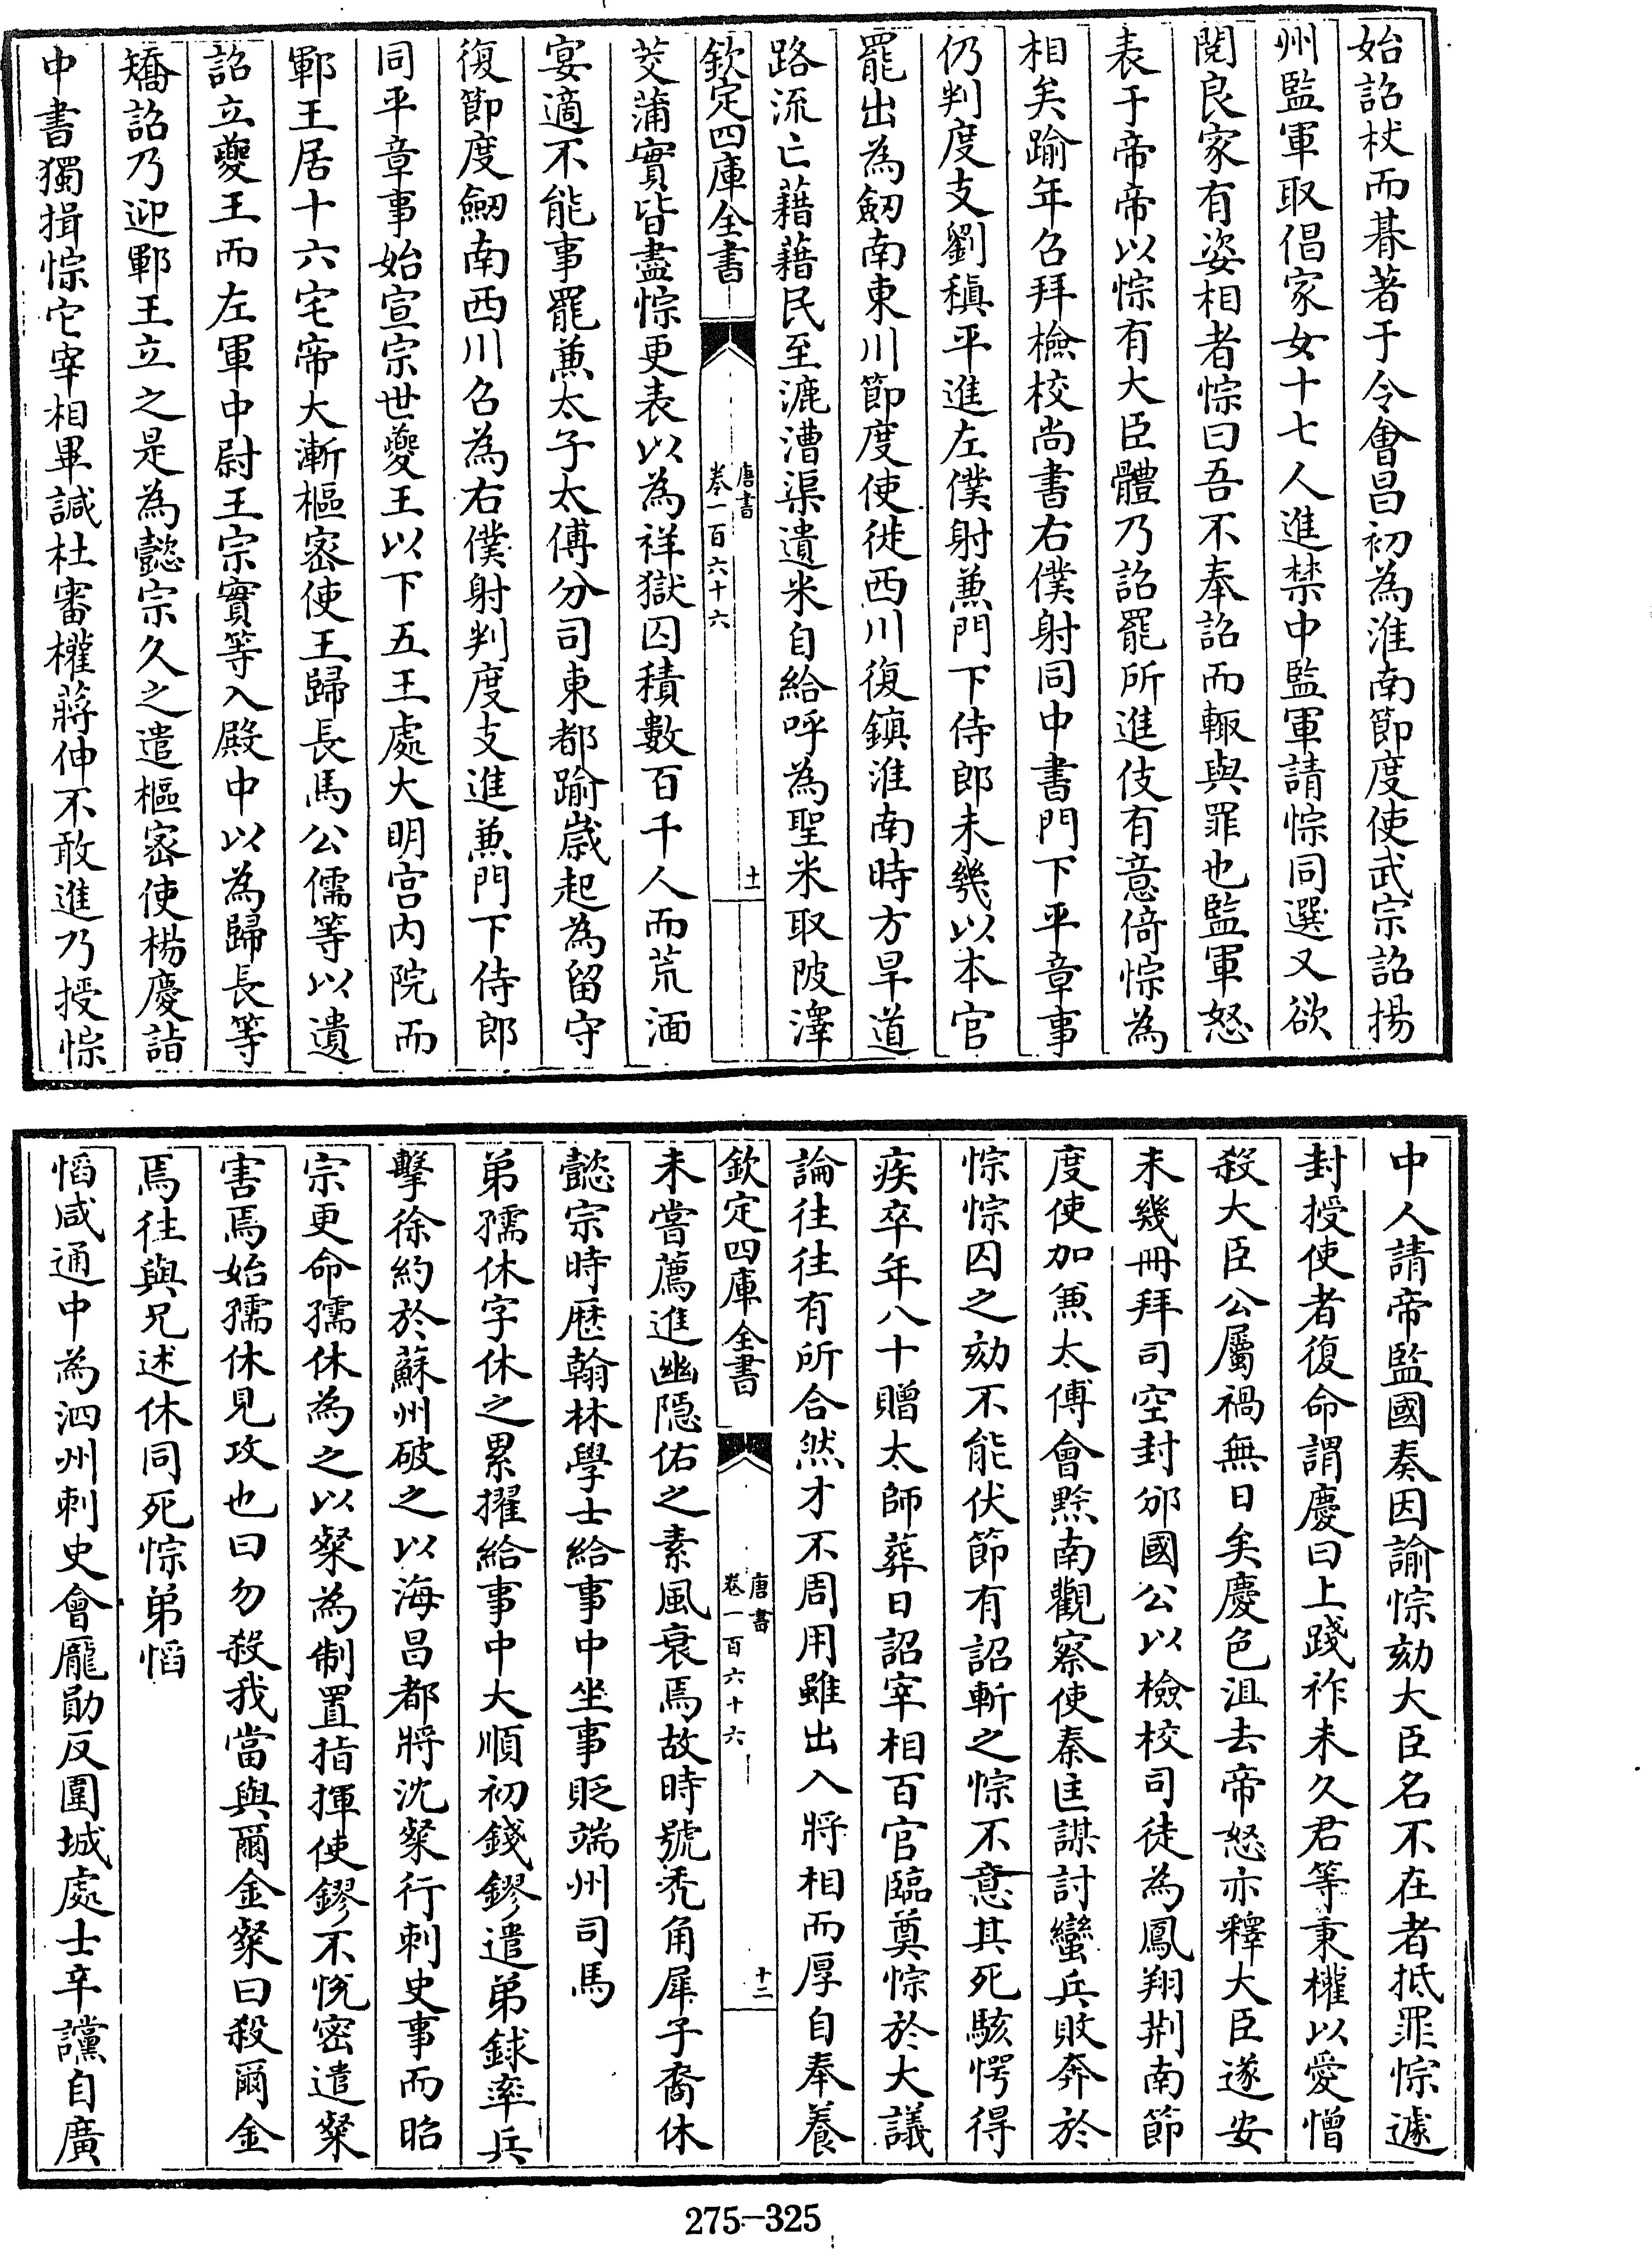 始詔杖而朞著于令會昌初為淮南節度使武宗詔揚
州監軍取倡家女十七人進禁中監軍請悰同選又欲
閱良家有姿相者悰曰吾不奉詔而輙與罪也監軍怒
表于帝帝以悰有大臣體乃詔罷所進伎有意倚悰為
相矣踰年召拜檢校尚書右僕射同中書門下平章事
仍判度支劉稹平進左僕射兼門下侍郎未幾以本官
罷出為劒南東川節度使徙西川復鎮淮南時方旱道
路流亡藉藉民至漉漕渠遺米自給呼為聖米取陂澤
欽定四庫全書
唐書
卷一百六十六
十一
茭蒲實皆盡悰更表以為祥獄囚積數百千人而荒湎
宴適不能事罷兼太子太傅分司東都踰歲起為留守
復節度劒南西川召為右僕射判度支進兼門下侍郎
同平章事始宣宗世夔王以下五王處大明宫内院而
鄆王居十六宅帝大漸樞密使王歸長馬公儒等以遺
詔立夔王而左軍中尉王宗實等入殿中以為歸長等
矯詔乃迎鄆王立之是為懿宗久之遣樞密使楊慶詣
中書獨揖悰它宰相畢諴杜審權蔣伸不敢進乃授悰
中人請帝監國奏因諭悰劾大臣名不在者抵罪悰遽
封授使者復命謂慶曰上踐祚未久君等秉權以愛憎
殺大臣公屬禍無日矣慶色沮去帝怒亦釋大臣遂安
未幾冊拜司空封邠國公以檢校司徒為鳳翔荆南節
度使加兼太傅會黔南觀察使秦匡謀討蠻兵敗奔於
悰悰囚之劾不能伏節有詔斬之悰不意其死駭愕得
疾卒年八十贈太師葬日詔宰相百官臨奠悰於大議
論往往有所合然才不周用雖出入將相而厚自奉養
欽定四庫全書
唐書
卷一百六十六
十二
未嘗薦進幽隠佑之素風衰焉故時號禿角犀子裔休
懿宗時歴翰林學士給事中坐事貶端州司馬
弟孺休字休之累擢給事中大順初錢鏐遣弟銶率兵
擊徐約於蘇州破之以海昌都將沈粲行刺史事而昭
宗更命孺休為之以粲為制置指揮使鏐不悅密遣粲
害焉始孺休見攻也曰勿殺我當與爾金粲曰殺爾金
焉往與兄述休同死悰弟慆
慆咸通中為泗州刺史會龎勛反圍城處士辛讜自廣
275-325